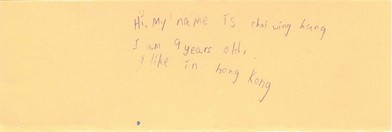 Hi, My name is chai wing hang
I am 9 years old.
I like in hong Kong